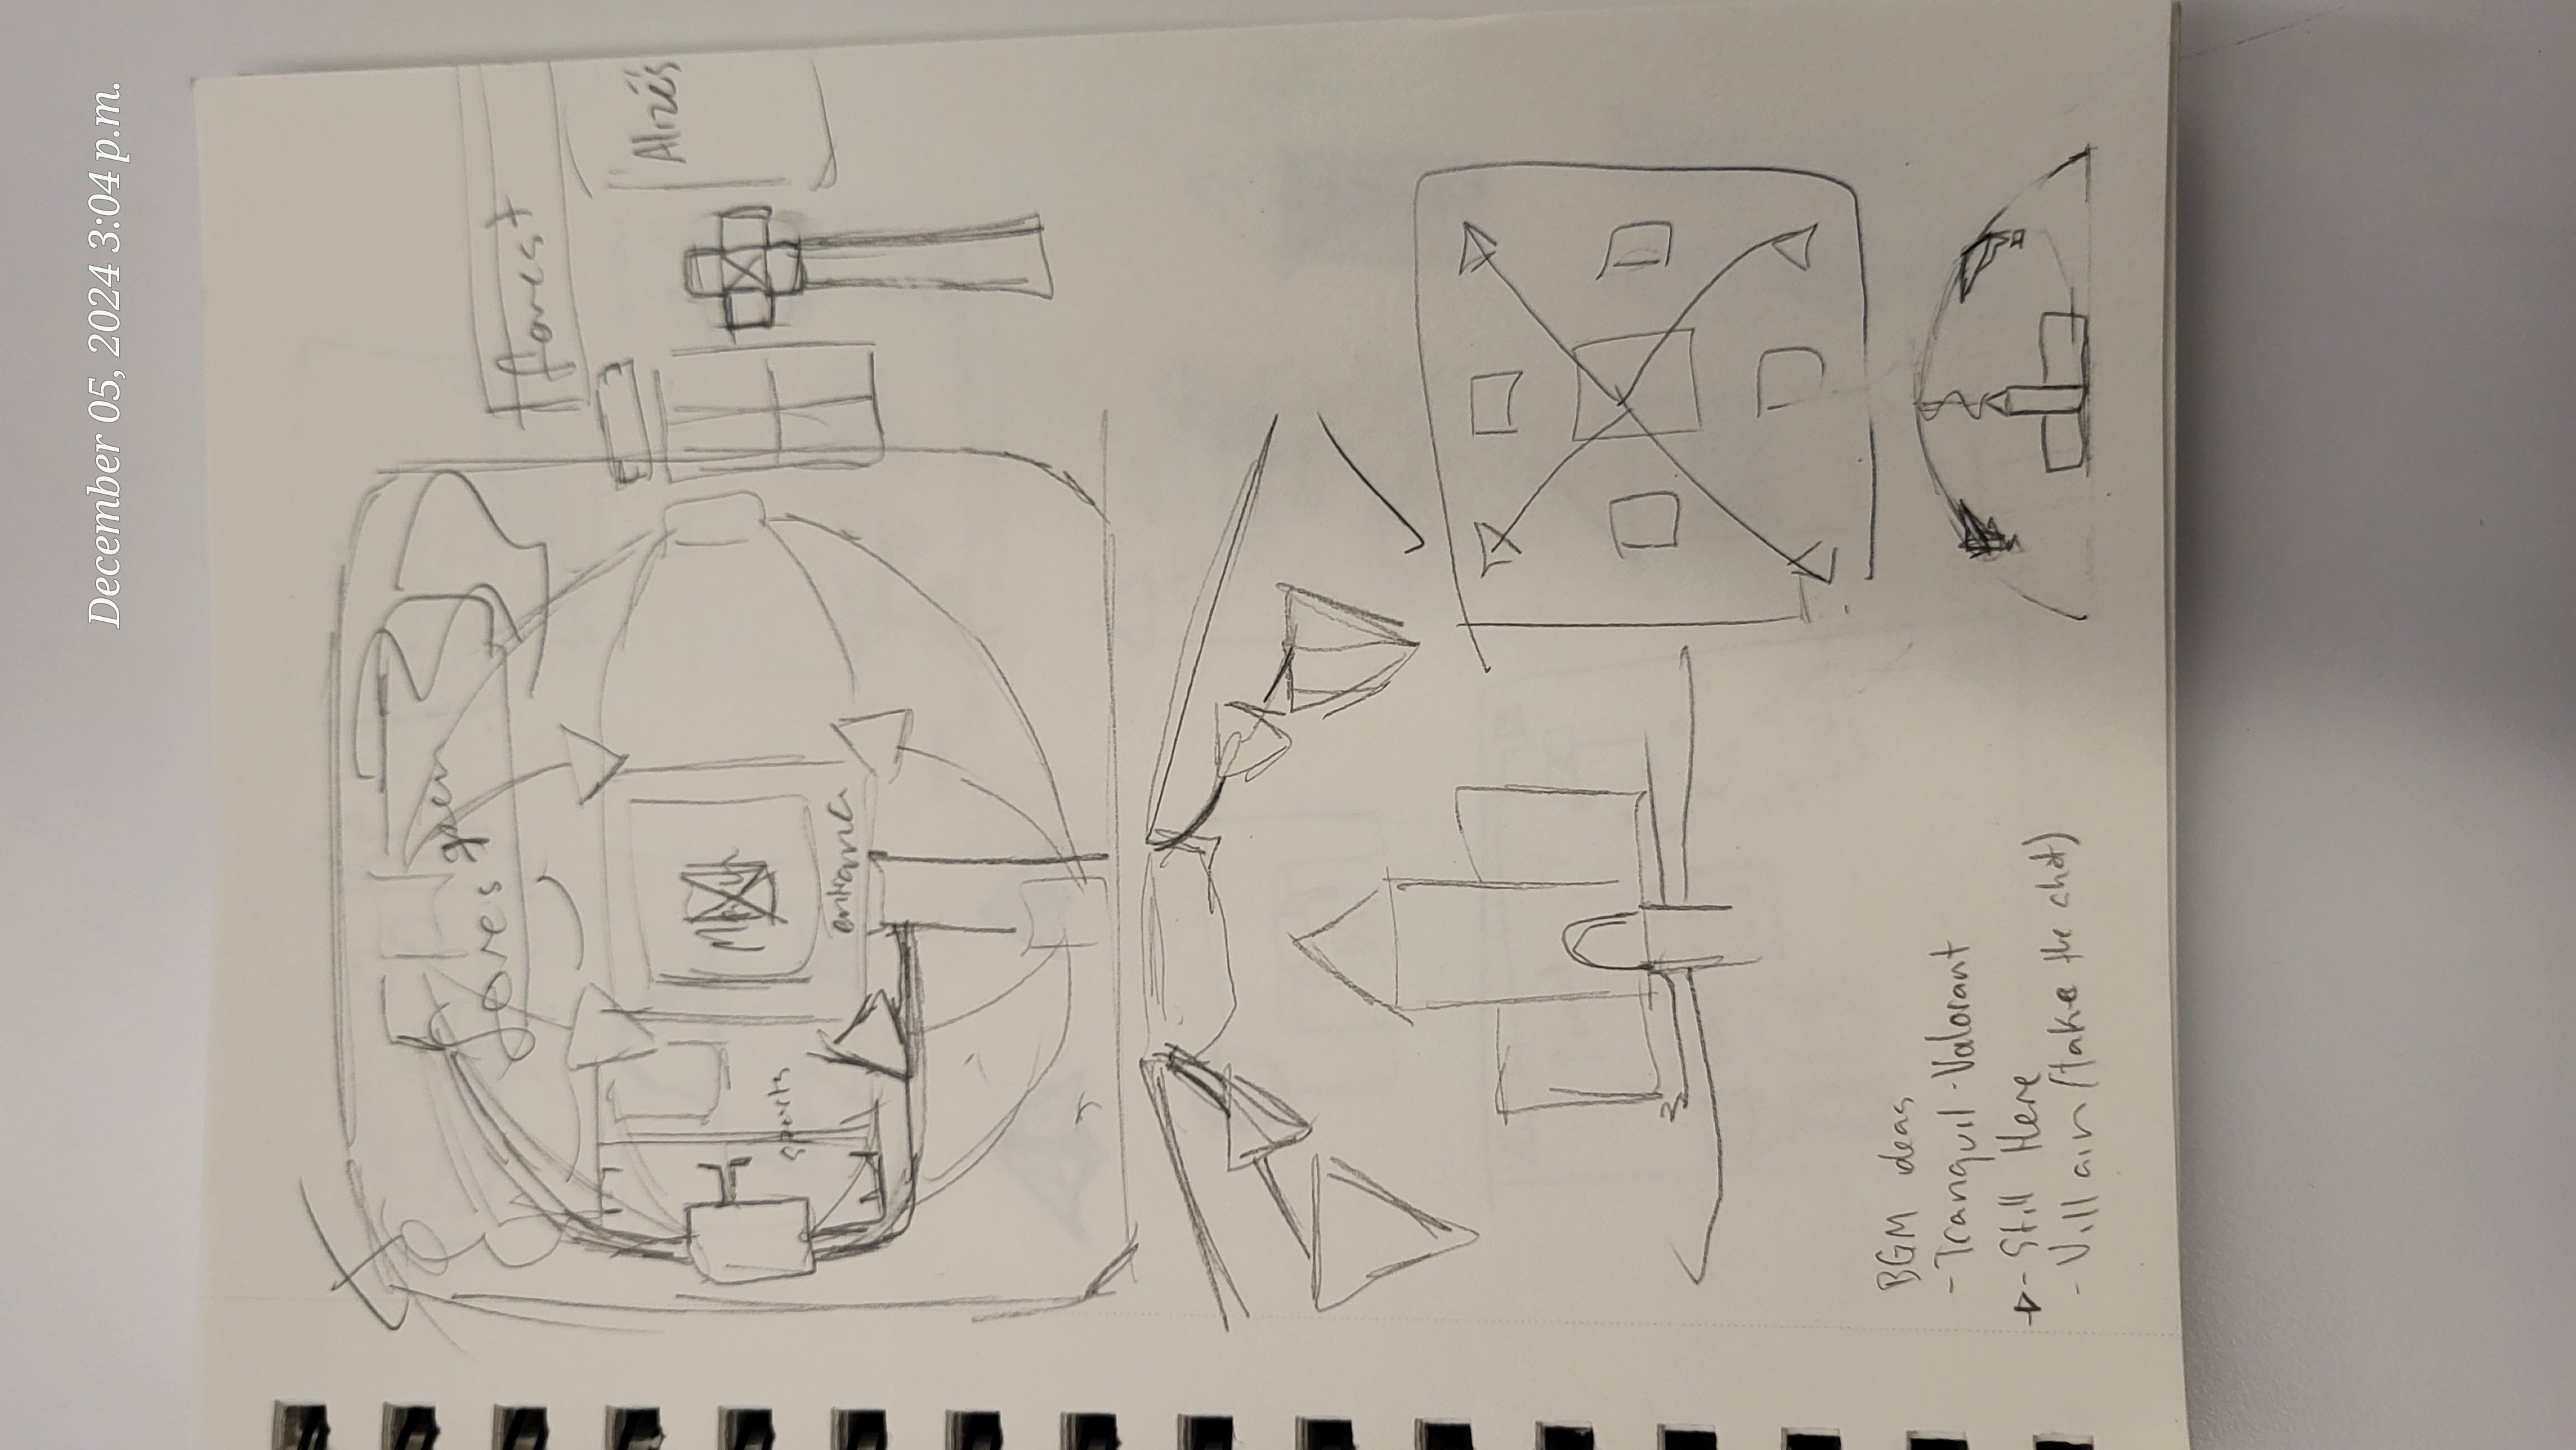 December 05, 2024 3:04 p.m.
open
forest
forest
Alizés
sports
entrance
BGM ideas
- Tranquil - Valorant
- Still Here
- Villain (take the shot)